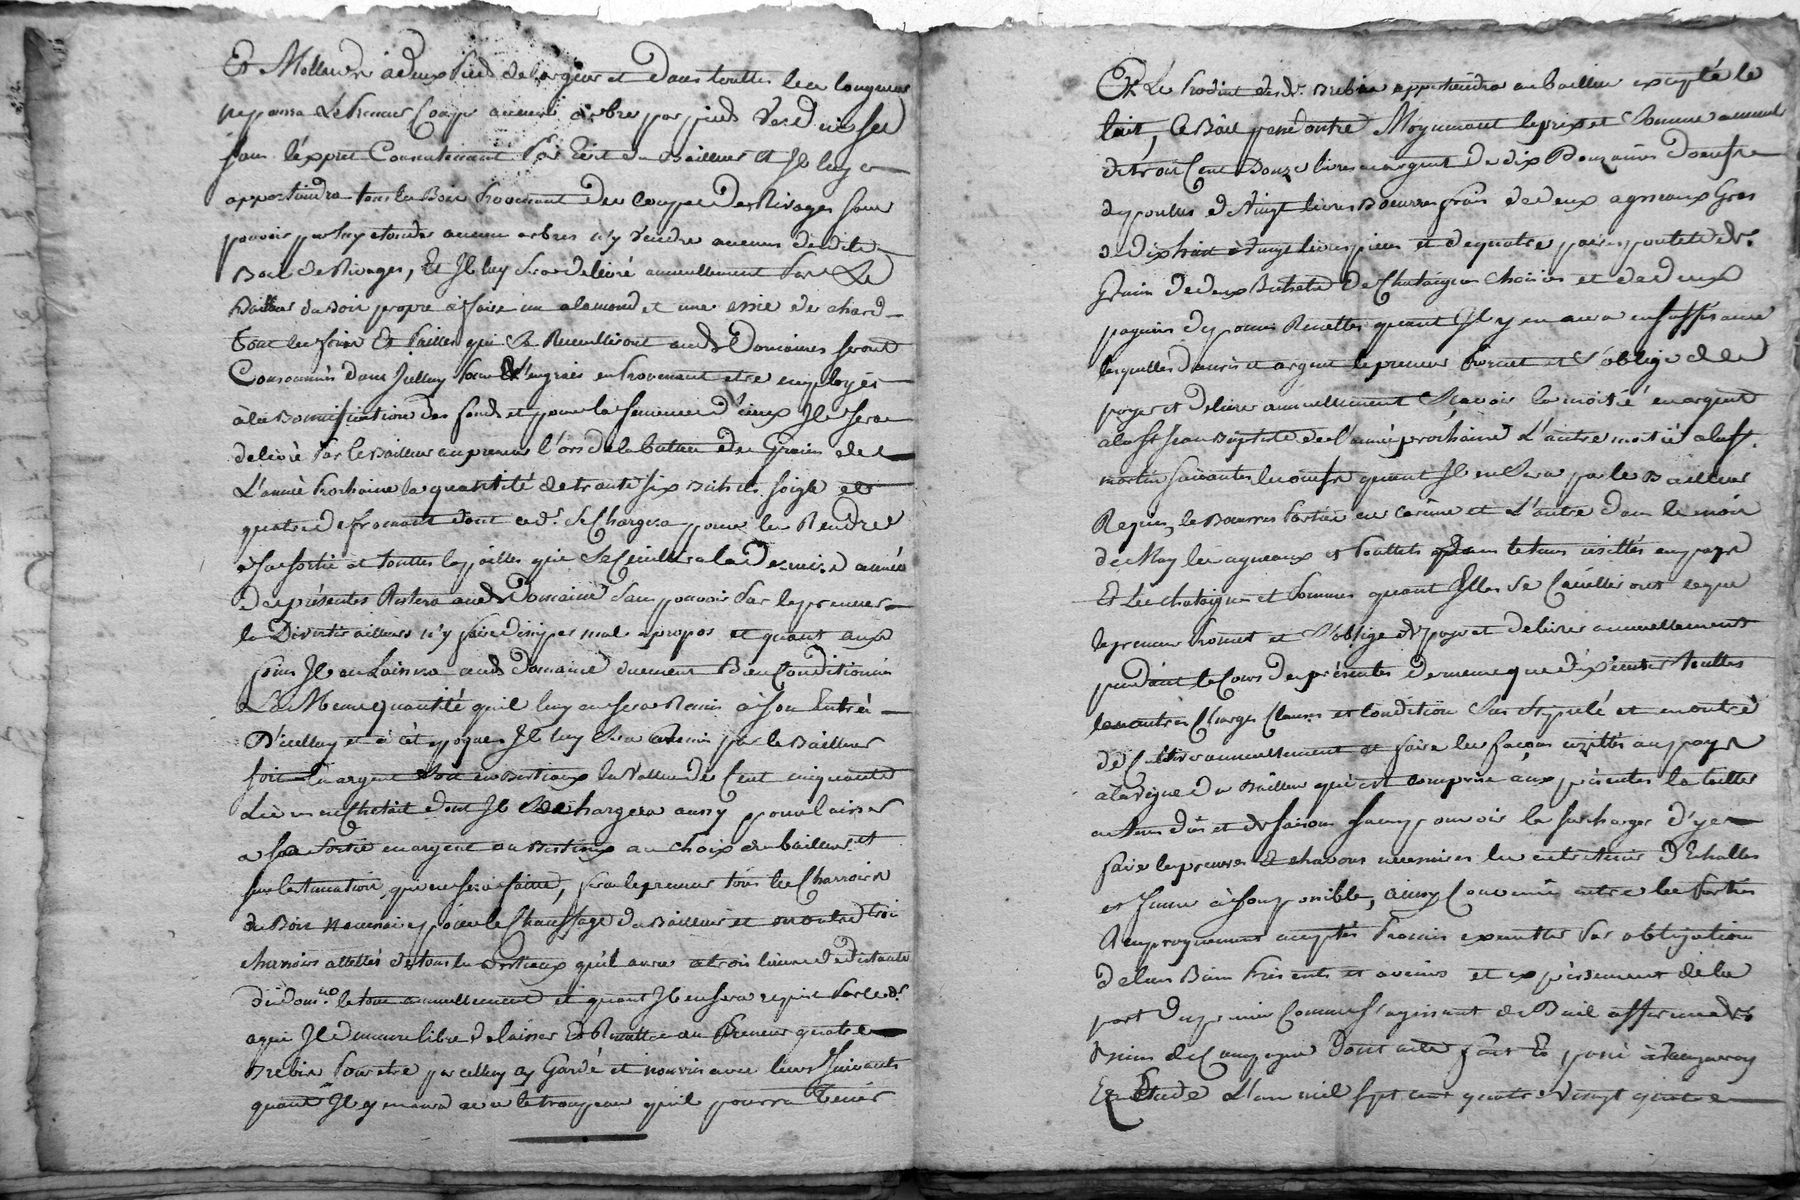 Et Mollandri a deux pied de largeur et dans touttes les longueurs
ne poura Le Preneur Couper aucuns arbre par pieds
sans l'exprés Consentement Par Ecrit du Bailleur et Il luy
appartiendra tous les Bois Provenant des coupes des Rivages sans
pouvoir par luy etendre aucuns arbres n'y vendre aucuns desdits
Bois de Rivages, Et Il luy sera delivré annuellement Par Le
Bailleur du Bois propre à faire un alamond et une essie de chard
Tous les foins Et Pailles qui Se Recueilliront audt Domaines seront
Consommés dans Jcelluy Pour L'engrais en Provenant etre employer
à la Bonnification des fonds et pour la semence d'iceux Il sera
delivré Par le Bailleur au preneur l'ors de la batture des Grains de
L'année Prochaine la quantité de trante six seigle et
quatre de fromant dont cedt. se Chargera pour les Rendre
à sa sortie et touttes les pailles qui Se Ceuillera la dernierre année
des présentes Restera audt Domaine sans pouvoir Par le preneur
la Divertir ailleurs n'y faire dissiper mal apropos et quant aux
foins Il en Laissera audt domaine duement Bien Conditionnés
La Meme quantité qu'il luy en sera Remis à son Entrée
D'icelluy et à cet epoque Il luy sera Remis par le Bailleur
soit en argent soit en Bestiaux la Valleur de Cent cinquante
Livres en Cheptail dont Il Se chargera aussy pour laisser
a sa sortie en argent ou Bestiaux au choix du bailleur et
sur l'estimation qui en sera faitte, fera le preneur tous les Charrois
de Bois necessaires pour le Chauffage du Bailleur et en outre trois
charrois attellés de tous les Bestiaux qu'il aura a trois lieues de distance
dud Domne le tout annuellement et quant Il en sera requis Par ledt.
a qui Il demeure libre de laisser Et Remettre au Preneur quatre
Brebis Pour etre par celluy cy Gardé et nourris avec leurs Suivants
quant Il y en aura avec le troupeau qu'il pourra Tenir
Et Le Produit desdt. Brebis appartiendra au bailleur excepté le
lait, Ce Bail passé outre Moyennant le prix et Somme annuelle
de trois Cent Douze livres en argent de dix Douzaines d'oeufs
de poules de Vingt livres Beurre frais de deux agneaux Gras
de dix huit à vingt livres piesse et de quatre paires poulets de
Grain de deux de Chataignes Choisies et de deux
paniers de pommes Renettes quant Il y en aura en suffisance
lesquelles denrés et argent le preneur Promet et S'oblige de
payer et delivrer annuellement Sçavoir la moitié en argent
a la St Jean Baptiste de l'année prochaine L'autre moitié a la St.
martin suivante les oeufs quant Il en sera par le Bailleur
Requis, le Beurre Partie en carême et L'autre dans le mois
de May les agneaux et Poullets dans le tems usittés au pays
Et Les chataignes et Pommes quant Elles Se Ceuilleront ce que
le preneur Promet et S'oblige de payer et delivrer annuellement
pendant le Cours des présentes de meme que d'éxécuter touttes
les autres Charges Clauses et Condition Sus Stypulé et en outre
de Cultiver annuellement et faire les façons usittés au pays
a la Vigne du Bailleur qui est comprise aux présentes la tailler
en tems dûs et de saison sans pouvoir la surcharger d'y
faire les preuves et chavons necessaires les entretenir d'Echallas
et fumer à son possible, ainsy Convenus entre les Parties
Reciproquement accepté Promis executter Par obligation
de leurs Biens Présents et avenirs et expréssement de la
part du preneur Comme s'agissant de Bail afferme de
Biens de Campagne Dont acte fait Et passé à
En Etude L'an mil sept cent quatre Vingt quatre